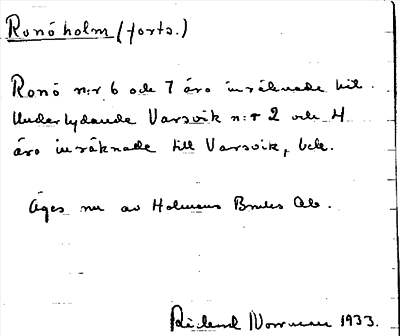 Ronöholm (forts.)
Ronö n:r 6 och 7 äro inräknade hit.
Underlydande Varsvik n:r 2 och 4
äro inräknade till Varsvik, beb.
Äges nu av Holmens Bruks Ab.
Rickard Norrman 1933.